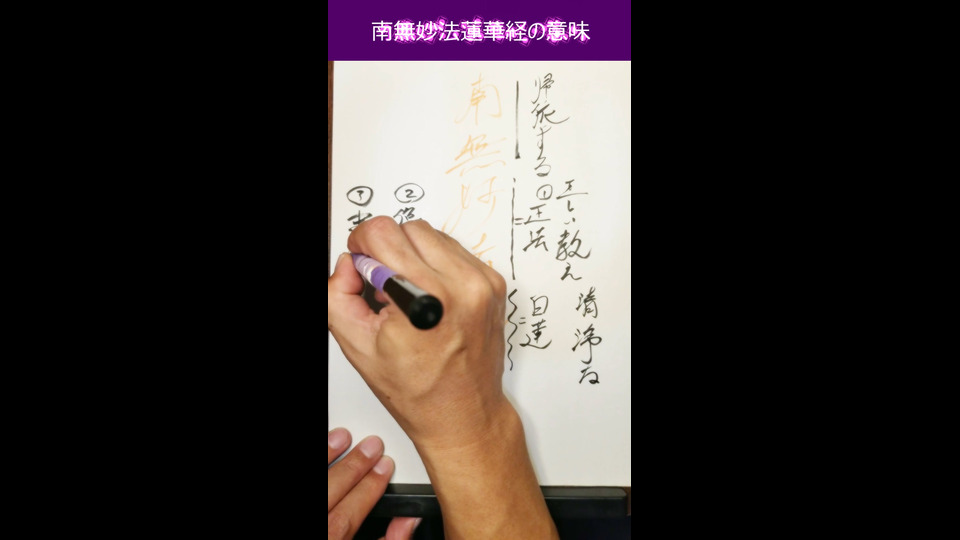 南無妙法蓮華経の意味
清浄な
正しい教え
帰依する
①正法
=白蓮
南無妙法
②
③